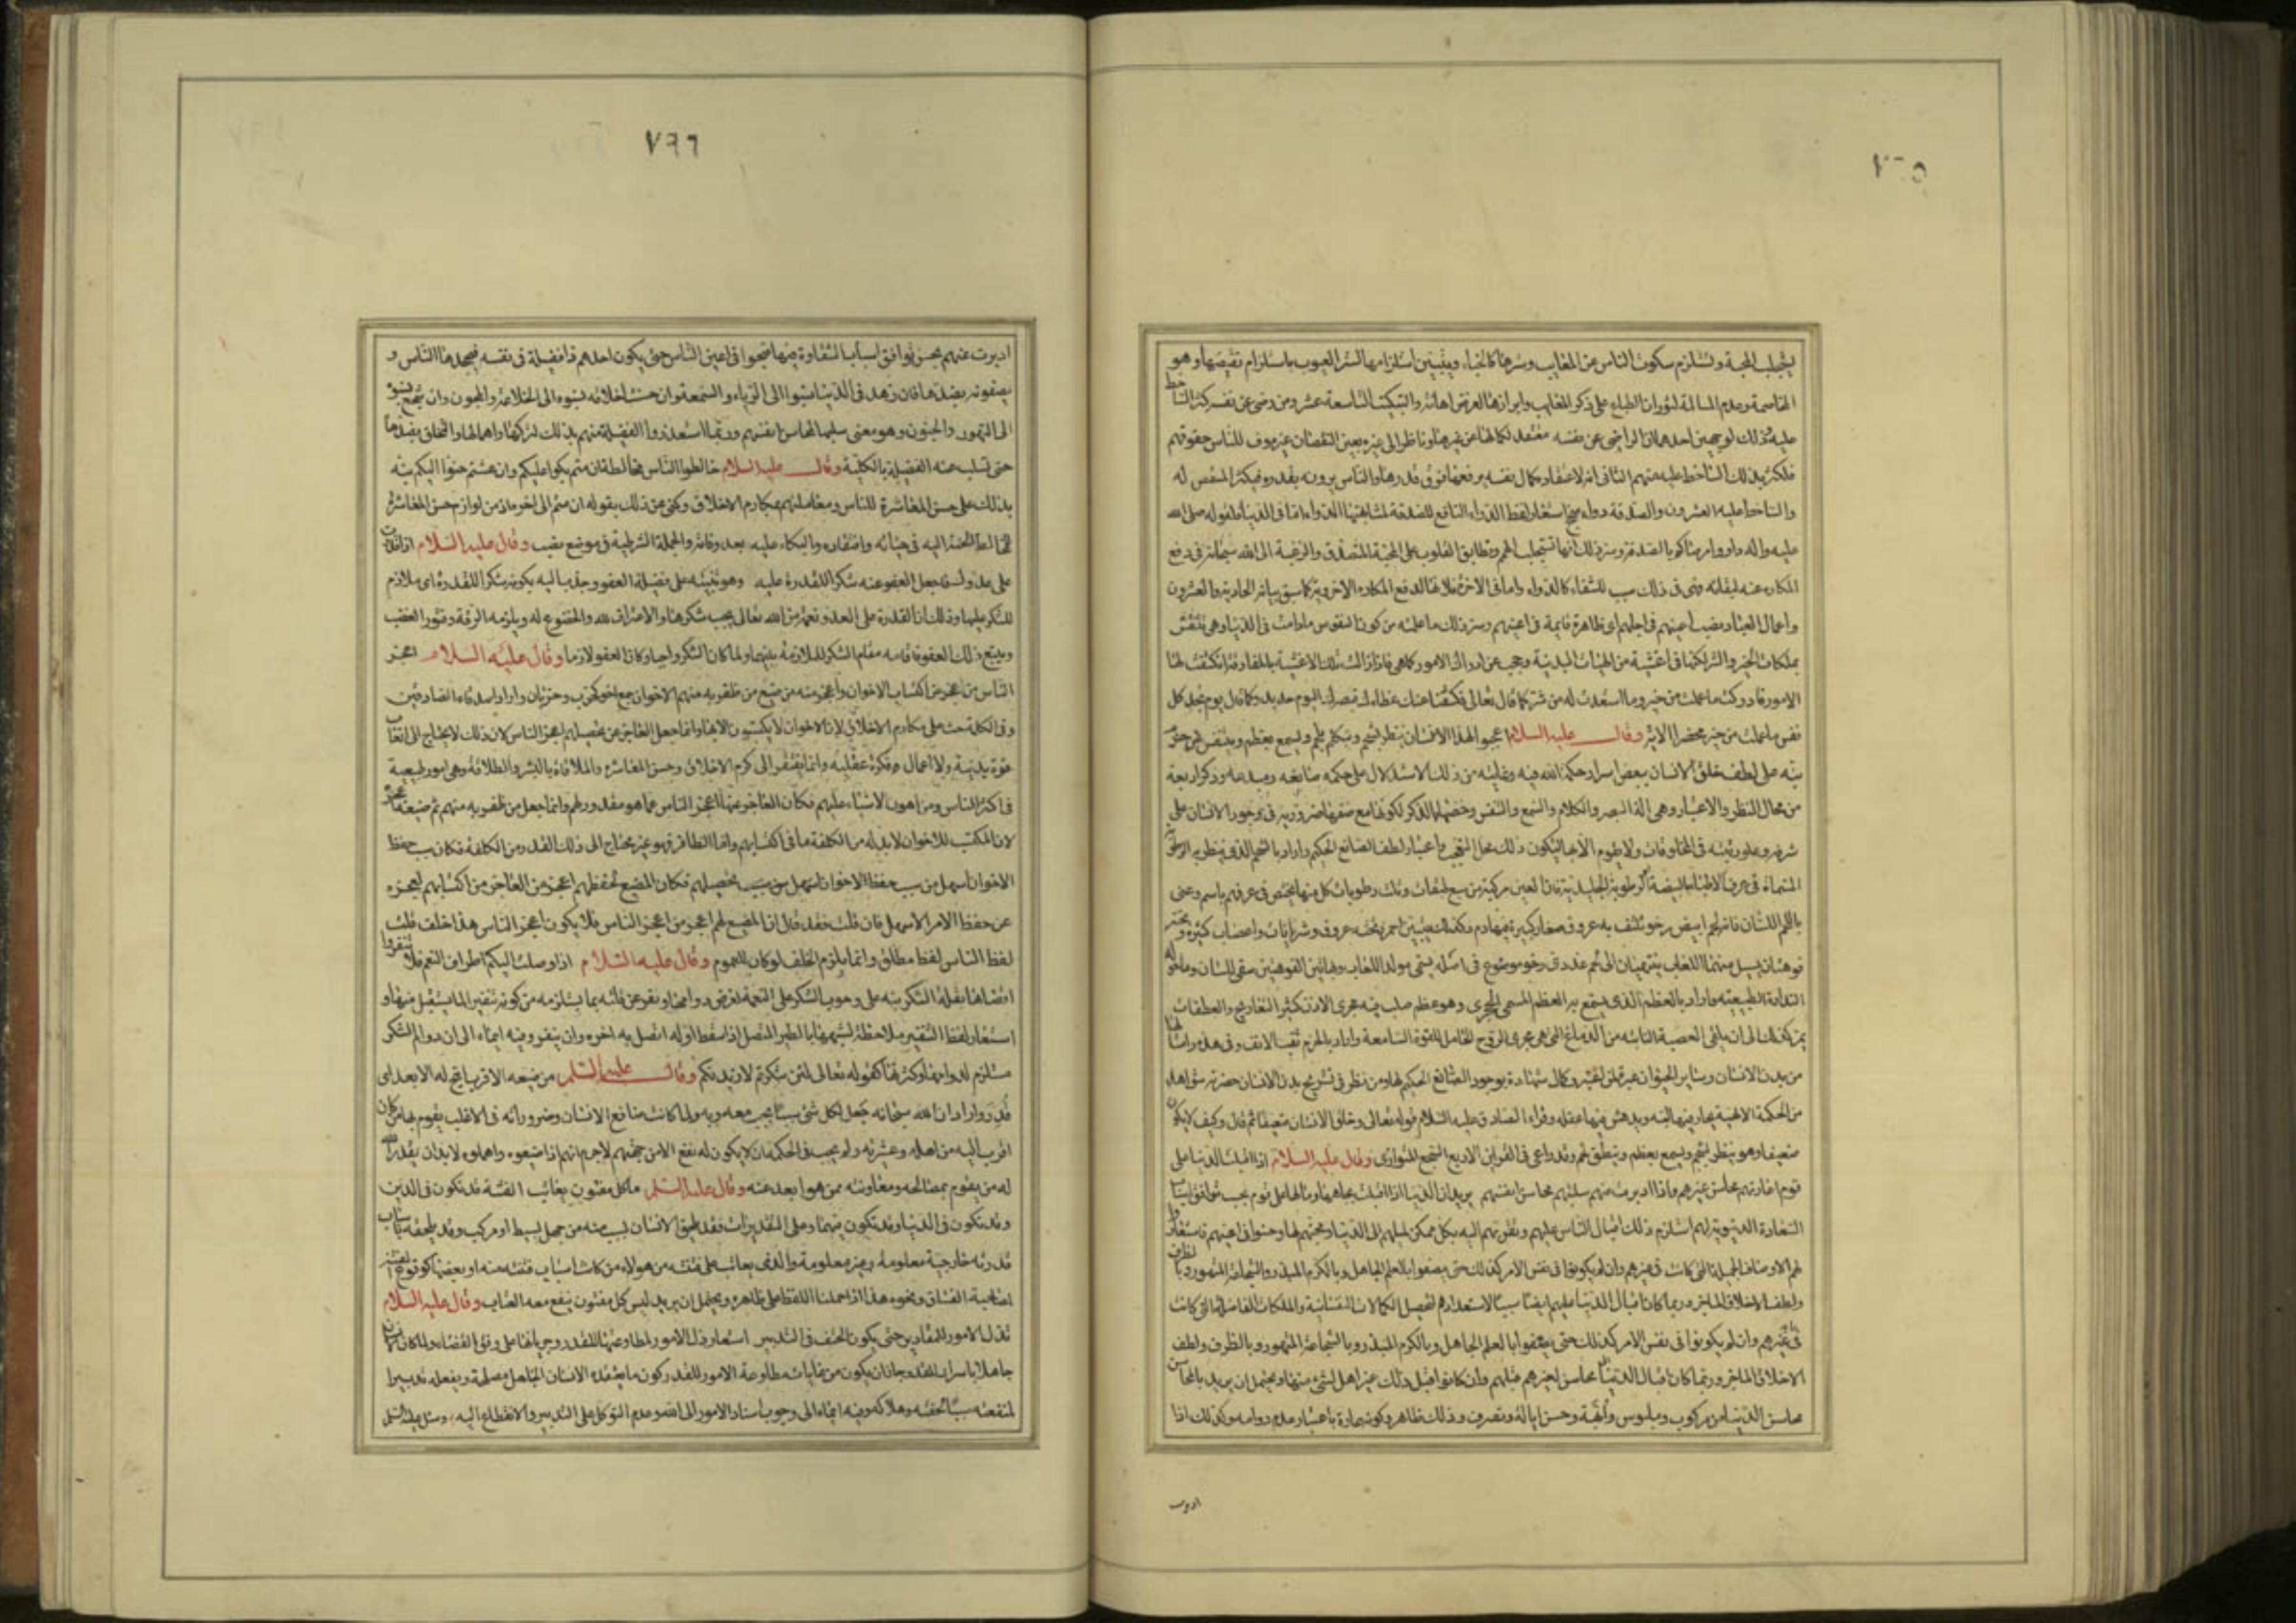 ٧٦٥
يستجلب المحبة وتستلزم سكوت الناس عن المعايب وسترها كالخباء ويتبين استلزامها لستر العيوب باستلزام نقيضها وهو
المخاصمة وعدم المسالمة لثوران الطباع على ذكر المعايب وابرازها لغرض اهانة والتبكيت التاسعة عشر ومن رضى عن نفسه كثر الساخط
عليه وذلك لوجهين احدهما ان الراضى عن نفسه معتقد لكمالها عن غيرها وناظر الى غيره بعين النقصان غير موف للناس حقوقهم
فيكثر بذلك الساخط عليه منهم الثانى انه لاعتقاده كمال نفسه يرفعها فوق قدرها والناس يرونه بقدره فيكثر المنقص له
والساخط عليه العشرون والصدقة دواء منجح استعار لفظ الدواء النافع للصدقة لمشابهتها الدواء اما فى الدنيا فلقوله صلى الله
عليه واله داووا مرضاكم بالصدقة وسر ذلك انها تستجلب الهمم وتطابق القلوب على المحبة المتصدق والرغبة الى الله سبحانه فى دفع
المكاره عنه لبقائه فهى فى ذلك سبب للشفاء كالدواء واما فى الاخرة فلانها لدفع المكاره الاخروية كما سبق بيانه الحادية والعشرون
واعمال العباد نصب اعينهم فى اجلهم اى ظاهرة قايمة فى اعينهم وسر ذلك ما علمته من كون النفوس ما دامت فى الدنيا وهى تنتقش
بملكات الخير والشر لكنها فى اغشية من الهيئات البدنية وحجب عن ادراك الامور كما هى فاذا زالت تلك الاغشية بالمفارقة انكشفت لها
الامور فادركت ما عملت من خير وما استعدت له من شر كما قال تعالى فكشفنا عنك غطاءك فبصرك اليوم حديد وكما قال يوم تجد كل
نفس ما عملت من خير محضرا الاية وقال عليه السلام اعجبوا لهذا الانسان ينظر بشحم ويتكلم بلحم ويسمع بعظم ويتنفس من خرم
نبه على لطف خلق الانسان ببعض اسرار حكمة الله فيه وغايته من ذلك الاستدلال على حكمة صانعه ومبدعه وذكر اربعة
من محال النظر والاعتبار وهى الة البصر والكلام والسمع والنفس وخصها بالذكر لكونها مع صغرها ضرورية فى وجود الانسان على
شرفه وعلو رتبته فى المخلوقات ولا يقوم الا بها ليكون ذلك محل التعجب واعتبار لطف الصانع الحكيم واراد بالشحم الذى ينظر به الرطوبة
المسماة فى عرف الاطباء بالبيضة او الرطوبة الجليدية فان العين مركبة من سبع طبقات وثلث رطوبات كل منها يختص فى عرفهم باسم وعنى
باللحم اللسان فانه لحم ابيض رخو تلتف به عروق صغار كثيرة فيها دم فكذلك يتبين احمر وتحته عروق وشريانات واعصاب كثيرة وتحته
فوهتان يسيل منهما اللعاب ينتهيان الى لحم غددى رخو موضوع فى اصله يسمى مولد اللعاب وبهاتين الفوهتين يبقى للسان وما حوله
النداوة الطبيعية واراد بالعظم الذى يسمع به العظم المسمى الحجرى وهو عظم صلب فيه مجرى الاذن كثير التعاريج والعطفات
يمر كذلك الى ان يلقى العصبة النابتة من الدماغ التى هى مجرى الروح الحامل للقوة السامعة واراد بالخرم ثقب الانف وفى هذه وامثالها
من بدن الانسان وساير الحيوان عبرة لمن اعتبر وكمال شهادة بوجود الصانع الحكيم لها ومن نظر فى تشريح بدن الانسان حضرته شواهد
من الحكمة الالهية يحار فيها لبه ويدهش فيها عقله وقراء الصادق عليه السلام قوله تعالى وخلق الانسان ضعيفا ثم قال وكيف لا يكون
ضعيفا وهو ينظر بشحم ويسمع بعظم وينطق بلحم وقد راعى فى القراين الاربع السجع المتوازى وقال عليه السلام اذا اقبلت الدنيا على
قوم اعارتهم محاسن غيرهم واذا ادبرت عنهم سلبتهم محاسن انفسهم يريد ان الدنيا اذا اقبلت بجاهها ومالها على قوم بحسب توافق اسباب
السعادة الدنيوية لهم استلزم ذلك اقبال الناس عليهم وتقربهم اليه بكل ممكن لميلهم الى الدنيا ومحبتهم لها وحسنوا فى اعينهم فاستعاروا
لهم الاوصاف الجميلة التى كانت فى غيرهم وان لم يكونوا فى نفس الامر كذلك حتى يصفوا بالعلم الجاهل وبالكرم المبذر وبالشجاعة المتهور وبالظرف
ولطف الاخلاق الماجن وربما كان اقبال الدنيا عليهم ايضا سببا لاستعدادهم لتحصيل الكمالات النفسانية والملكات الفاضلة التى كانت
فى غيرهم وان لم يكونوا فى نفس الامر كذلك حتى يصفوا بالعلم الجاهل وبالكرم المبذر وبالشجاعة المتهور وبالظرف ولطف
الاخلاق الماجن وربما كان اقبال الدنيا محاسن لغيرهم مثلهم وان كانوا قبل ذلك غير اهل لشىء منها ويحتمل ان يريد بالمحاسن
محاسن الدنيا من مركوب وملبوس وابهة وحسن ايالة وتصرف وذلك ظاهر وكونها عارة باعتبار عدم دوامه وكذلك اذا
ادبرت
٧٦٦
ادبرت عنهم بحسب توافق اسباب الشقاوة فيها قبحوا فى اعين الناس حتى يكون احدهم ذا فضيلة فى نفسه فيجحدها الناس و
يصفونه بضدها فان زهد فى الدنيا نسبوا الى الرياء والسمعة وان حسنت اخلاقه نسبوه الى الخلاعة والمجون وان شجع نسبوه
الى التهور والجنون وهو معنى سلبها لمحاسن انفسهم وربما استعذروا الفضيلة منهم بذلك لتركها واهمالها والتخلق بضدها
حتى تسلب عنه الفضيلة بالكلية وقال عليه السلام خالطوا الناس مخالطة ان متم بكوا عليكم وان عشتم حنوا اليكم نبه
بذلك على حسن المعاشرة للناس ومعاملتهم بمكارم الاخلاق وكنى عن ذلك بقوله ان متم الى اخره اذ من لوازم حسن المعاشرة
الحنة اليه فى حياته وافتقاده والبكاء عليه بعد وفاته والجملة الشرطية فى موضع نصب وقال عليه السلام اذا قدرت
على عدوك فاجعل العفو عنه شكرا للقدرة عليه وهو تنبيه على فضيلة العفو وجذب اليه بكونه شكرا للقدرة اى ملازم
للشكر عليها وذلك ان القدرة على العدو نعمة من الله تعالى يجب شكرها والاعتراف لله والخضوع له ويلزمه الرقة وفتور الغضب
ويتبع ذلك العفو فاقامه مقام الشكر للملازمة بينهما ولما كان الشكر واجبا وكان العفو لازما وقال عليه السلام اعجز
الناس من عجز عن اكتساب الاخوان واعجز منه من ضيع من ظفر به منهم الاخوان جمع اخ كخرب وخربان واراد اصدقاء الصادقين
وفى الكلمة حث على مكارم الاخلاق لان الاخوان لا يكتسبون الا بها وانما جعل العاجز عن تحصيلهم اعجز الناس لان ذلك لا يحتاج الى اتعاب
قوة بدنية ولا اعمال فكرة عقلية وانما يفتقر الى كرم الاخلاق وحسن المعاشرة والملاقاة بالبشر والطلاقة وهى امور طبيعية
فى اكثر الناس ومن اهون الاشياء عليهم فكان العاجز عنها اعجز الناس عما هو مقدور لهم وانما جعل من ظفر به منهم ثم ضيعه اعجز
لان المكتسب للاخوان لابد له من الكلفة ما فى اكتسابهم واما الظافر فهو غير محتاج الى ذلك القدر من الكلفة فكان سبب حفظ
الاخوان اسهل من سبب حفظ الاخوان اسهل من سبب تحصيلهم فكان المضيع لحفظهم اعجز من العاجز من اكتسابهم لعجزه
عن حفظ الامر الاسهل فان قلت فقد قال ان المضيع لهم اعجز من اعجز الناس فلا يكون اعجز الناس هذا خلف قلت
لفظ الناس لفظ مطلق وانما يلزم الخلف لو كان للعموم وقال عليه السلام اذا وصلت اليكم اطراف النعم فلا تنفروا
اقصاها بقلة الشكر نبه على وجوب الشكر على النعمة لغرض دوامها ونفر عن قلته بما يستلزمه من كونه تنفيرا لما يستقبل منها و
استعار لفظ التنفير ملاحظة لشبهها بالطير المتصل اذا سقط اوله اتصل به اخره وان ينفر وفيه ايماء الى ان دوام الشكر
مستلزم لدوامها وكثرتها كقوله تعالى لئن شكرتم لازيدنكم وقال عليه السلام من ضيعه الاقرب اتيح له الابعد اى
قدر واراد ان الله سبحانه جعل لكل شئ سببا يجب معه وبه ولما كانت منافع الانسان وضروراته فى الاغلب يقوم بها من كان
اقرب اليه من اهله وعشيرته ولم يجب فى الحكمة ان لا يكون له نفع الا من جهتهم لاجرم انهم اذا ضيعوه واهملوه لابد ان يقدر الله
له من يقوم بمصالحه ومعاونته ممن هو ابعد عنه وقال عليه السلم ما كل مفتون يعاتب الفتنة قد تكون فى الدين
وقد تكون فى الدنيا وقد تكون فيهما وعلى التقديرات فقد يلحق الانسان بسبب منه من جهل بسيط او مركب وقد يلحقه باسباب
قدرية خارجية معلومة وغير معلومة والذى يعاتب على فتنته من هولاء من كانت اسباب فتنته منه او بعضها كوقوع الفتنة
لصاحبة الفساق ونحوه هذا اذا حملنا اللفظ على ظاهره ويحتمل ان يريد ليس كل مفتون ينفع معه العتاب وقال عليه السلام
تذل الامور للمقادير حتى يكون الحتف فى التدبير استعار وذل الامور لمطاوعتها للقدر وجريانها على وفق القضاء ولما كان الانسان
جاهلا باسرار القدر جاز ان يكون من غايات مطاوعة الامور للقدر كون ما يعتقده الانسان الجاهل مصلحة ويفعله تدبيرا
لمنفعته سببا لحتفه وهلاكه وفيه ايماء الى وجوب اسناد الامور الى الله وعدم التوكل على التدبير والانقطاع اليه وسئل عليه السلم